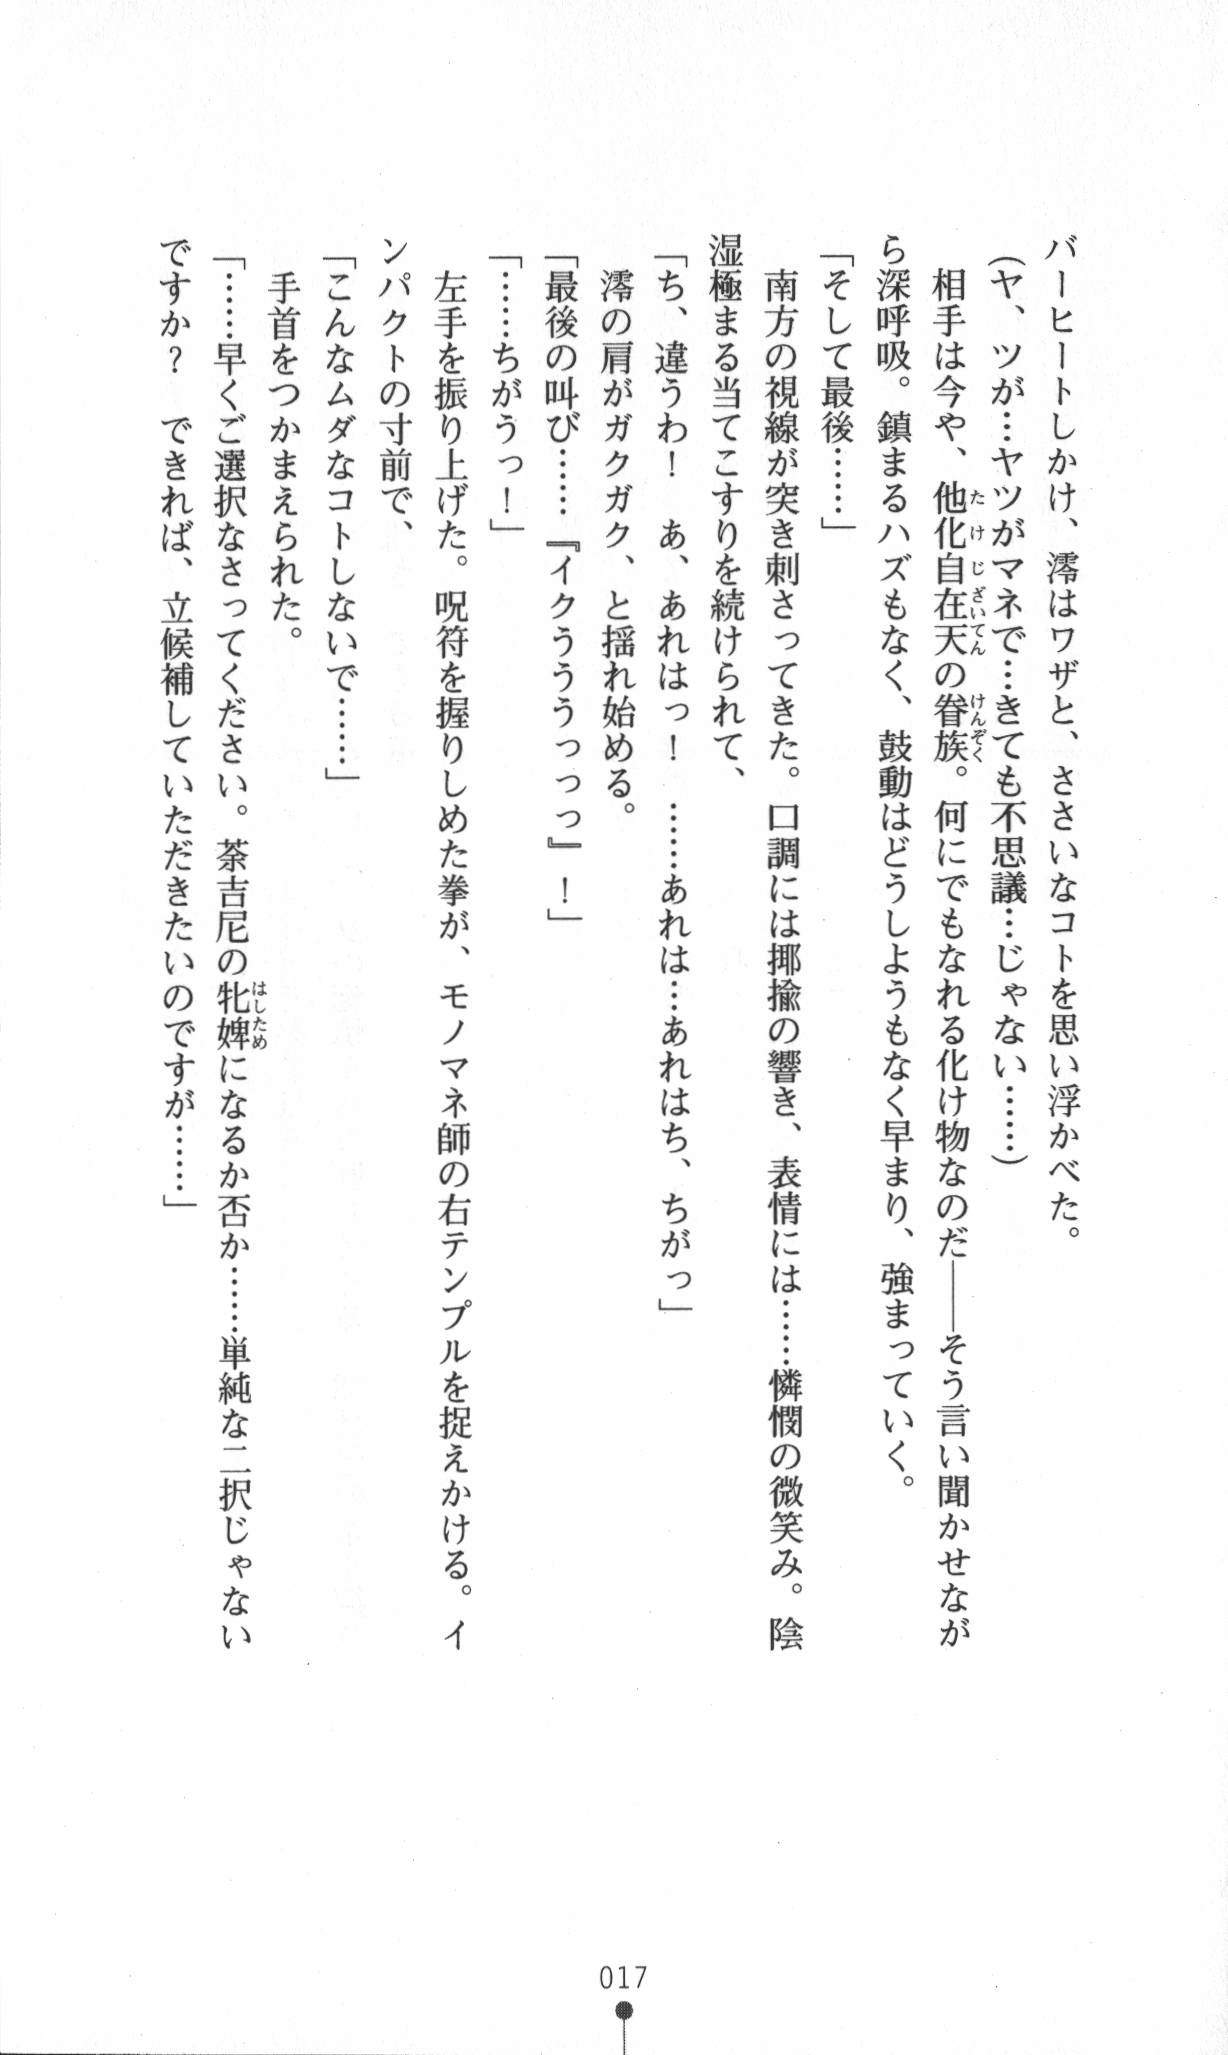 バーヒートしかけ、澪はワザと、ささいなコトを思い浮かべた。
（ヤ、ツが…ヤツがマネで…きても不思議…じゃない……）
　相手は今や、他化自在天の眷族。何にでもなれる化け物なのだ――そう言い聞かせなが
ら深呼吸。鎮まるハズもなく、鼓動はどうしようもなく早まり、強まっていく。
「そして最後……」
　南方の視線が突き刺さってきた。口調には揶揄の響き、表情には……憐憫の微笑み。陰
湿極まる当てこすりを続けられて、
「ち、違うわ！　あ、あれはっ！　……あれは…あれはち、ちがっ」
　澪の肩がガクガク、と揺れ始める。
「最後の叫び……『イクうううっっっ』！」
「……ちがうっ！」
　左手を振り上げた。呪符を握りしめた拳が、モノマネ師の右テンプルを捉えかける。イ
ンパクトの寸前で、
「こんなムダなコトしないで……」
　手首をつかまえられた。
「……早くご選択なさってください。荼吉尼の牝婢になるか否か……単純な二択じゃない
ですか？　できれば、立候補していただきたいのですが……」
たけじざいてん
けんぞく
はしため
017